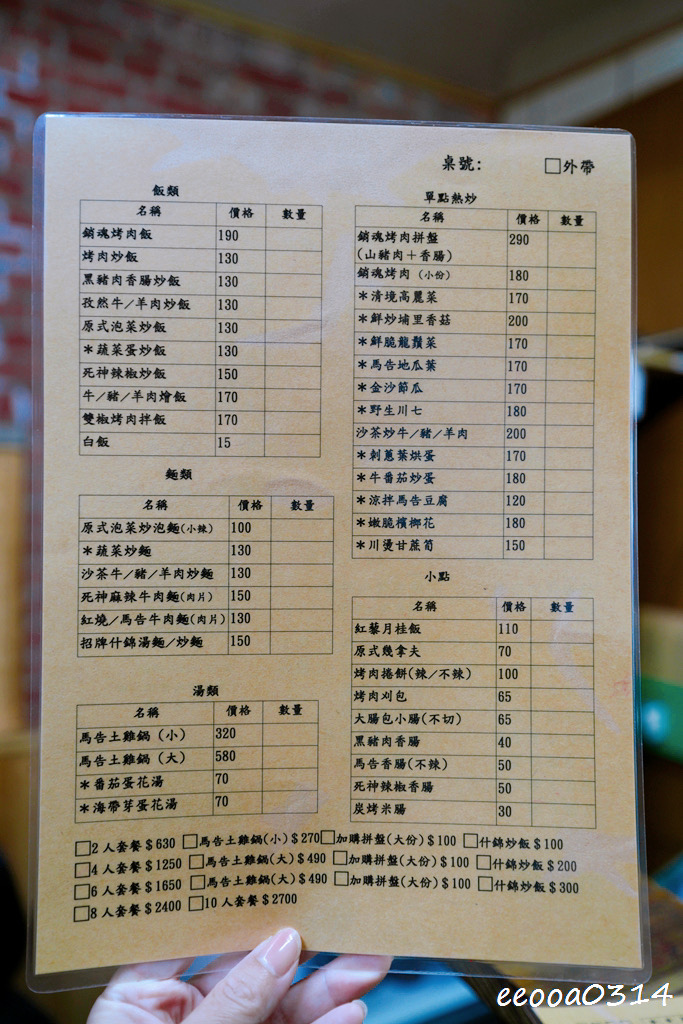 桌號: □外帶
飯類
名稱 價格 數量
銷魂烤肉飯 190
烤肉炒飯 130
黑豬肉香腸炒飯 130
孜然牛/羊肉炒飯 130
原式泡菜炒飯 130
*蔬菜蛋炒飯 130
死神辣椒炒飯 150
牛/豬/羊肉燴飯 170
雙椒烤肉拌飯 170
白飯 15
麵類
名稱 價格 數量
原式泡菜炒泡麵(小辣) 100
*蔬菜炒麵 130
沙茶牛/豬/羊肉炒麵 130
死神麻辣牛肉麵(肉片) 150
紅燒/馬告牛肉麵(肉片) 130
招牌什錦湯麵/炒麵 150
湯類
名稱 價格 數量
馬告土雞鍋(小) 320
馬告土雞鍋(大) 580
*番茄蛋花湯 70
*海帶芽蛋花湯 70
單點熱炒
名稱 價格 數量
銷魂烤肉拼盤 290
(山豬肉+香腸)
銷魂烤肉(小份) 180
*清境高麗菜 170
*鮮炒埔里香菇 200
*鮮脆龍鬚菜 170
*馬告地瓜葉 170
*金沙節瓜 170
*野生川七 180
沙茶炒牛/豬/羊肉 200
*刺蔥葉烘蛋 170
*牛番茄炒蛋 180
*涼拌馬告豆腐 120
*嫩脆檳榔花 180
*川燙甘蔗筍 150
小點
名稱 價格 數量
紅藜月桂飯 110
原式幾拿夫 70
烤肉捲餅(辣/不辣) 100
烤肉刈包 65
大腸包小腸(不切) 65
黑豬肉香腸 40
馬告香腸(不辣) 50
死神辣椒香腸 50
炭烤米腸 30
□2人套餐$630 □馬告土雞鍋(小)$270 □加購拼盤(大份)$100 □什錦炒飯$100
□4人套餐$1250 □馬告土雞鍋(大)$490 □加購拼盤(大份)$100 □什錦炒飯$200
□6人套餐$1650 □馬告土雞鍋(大)$490 □加購拼盤(大份)$100 □什錦炒飯$300
□8人套餐$2400 □10人套餐$2700
eeooa0314